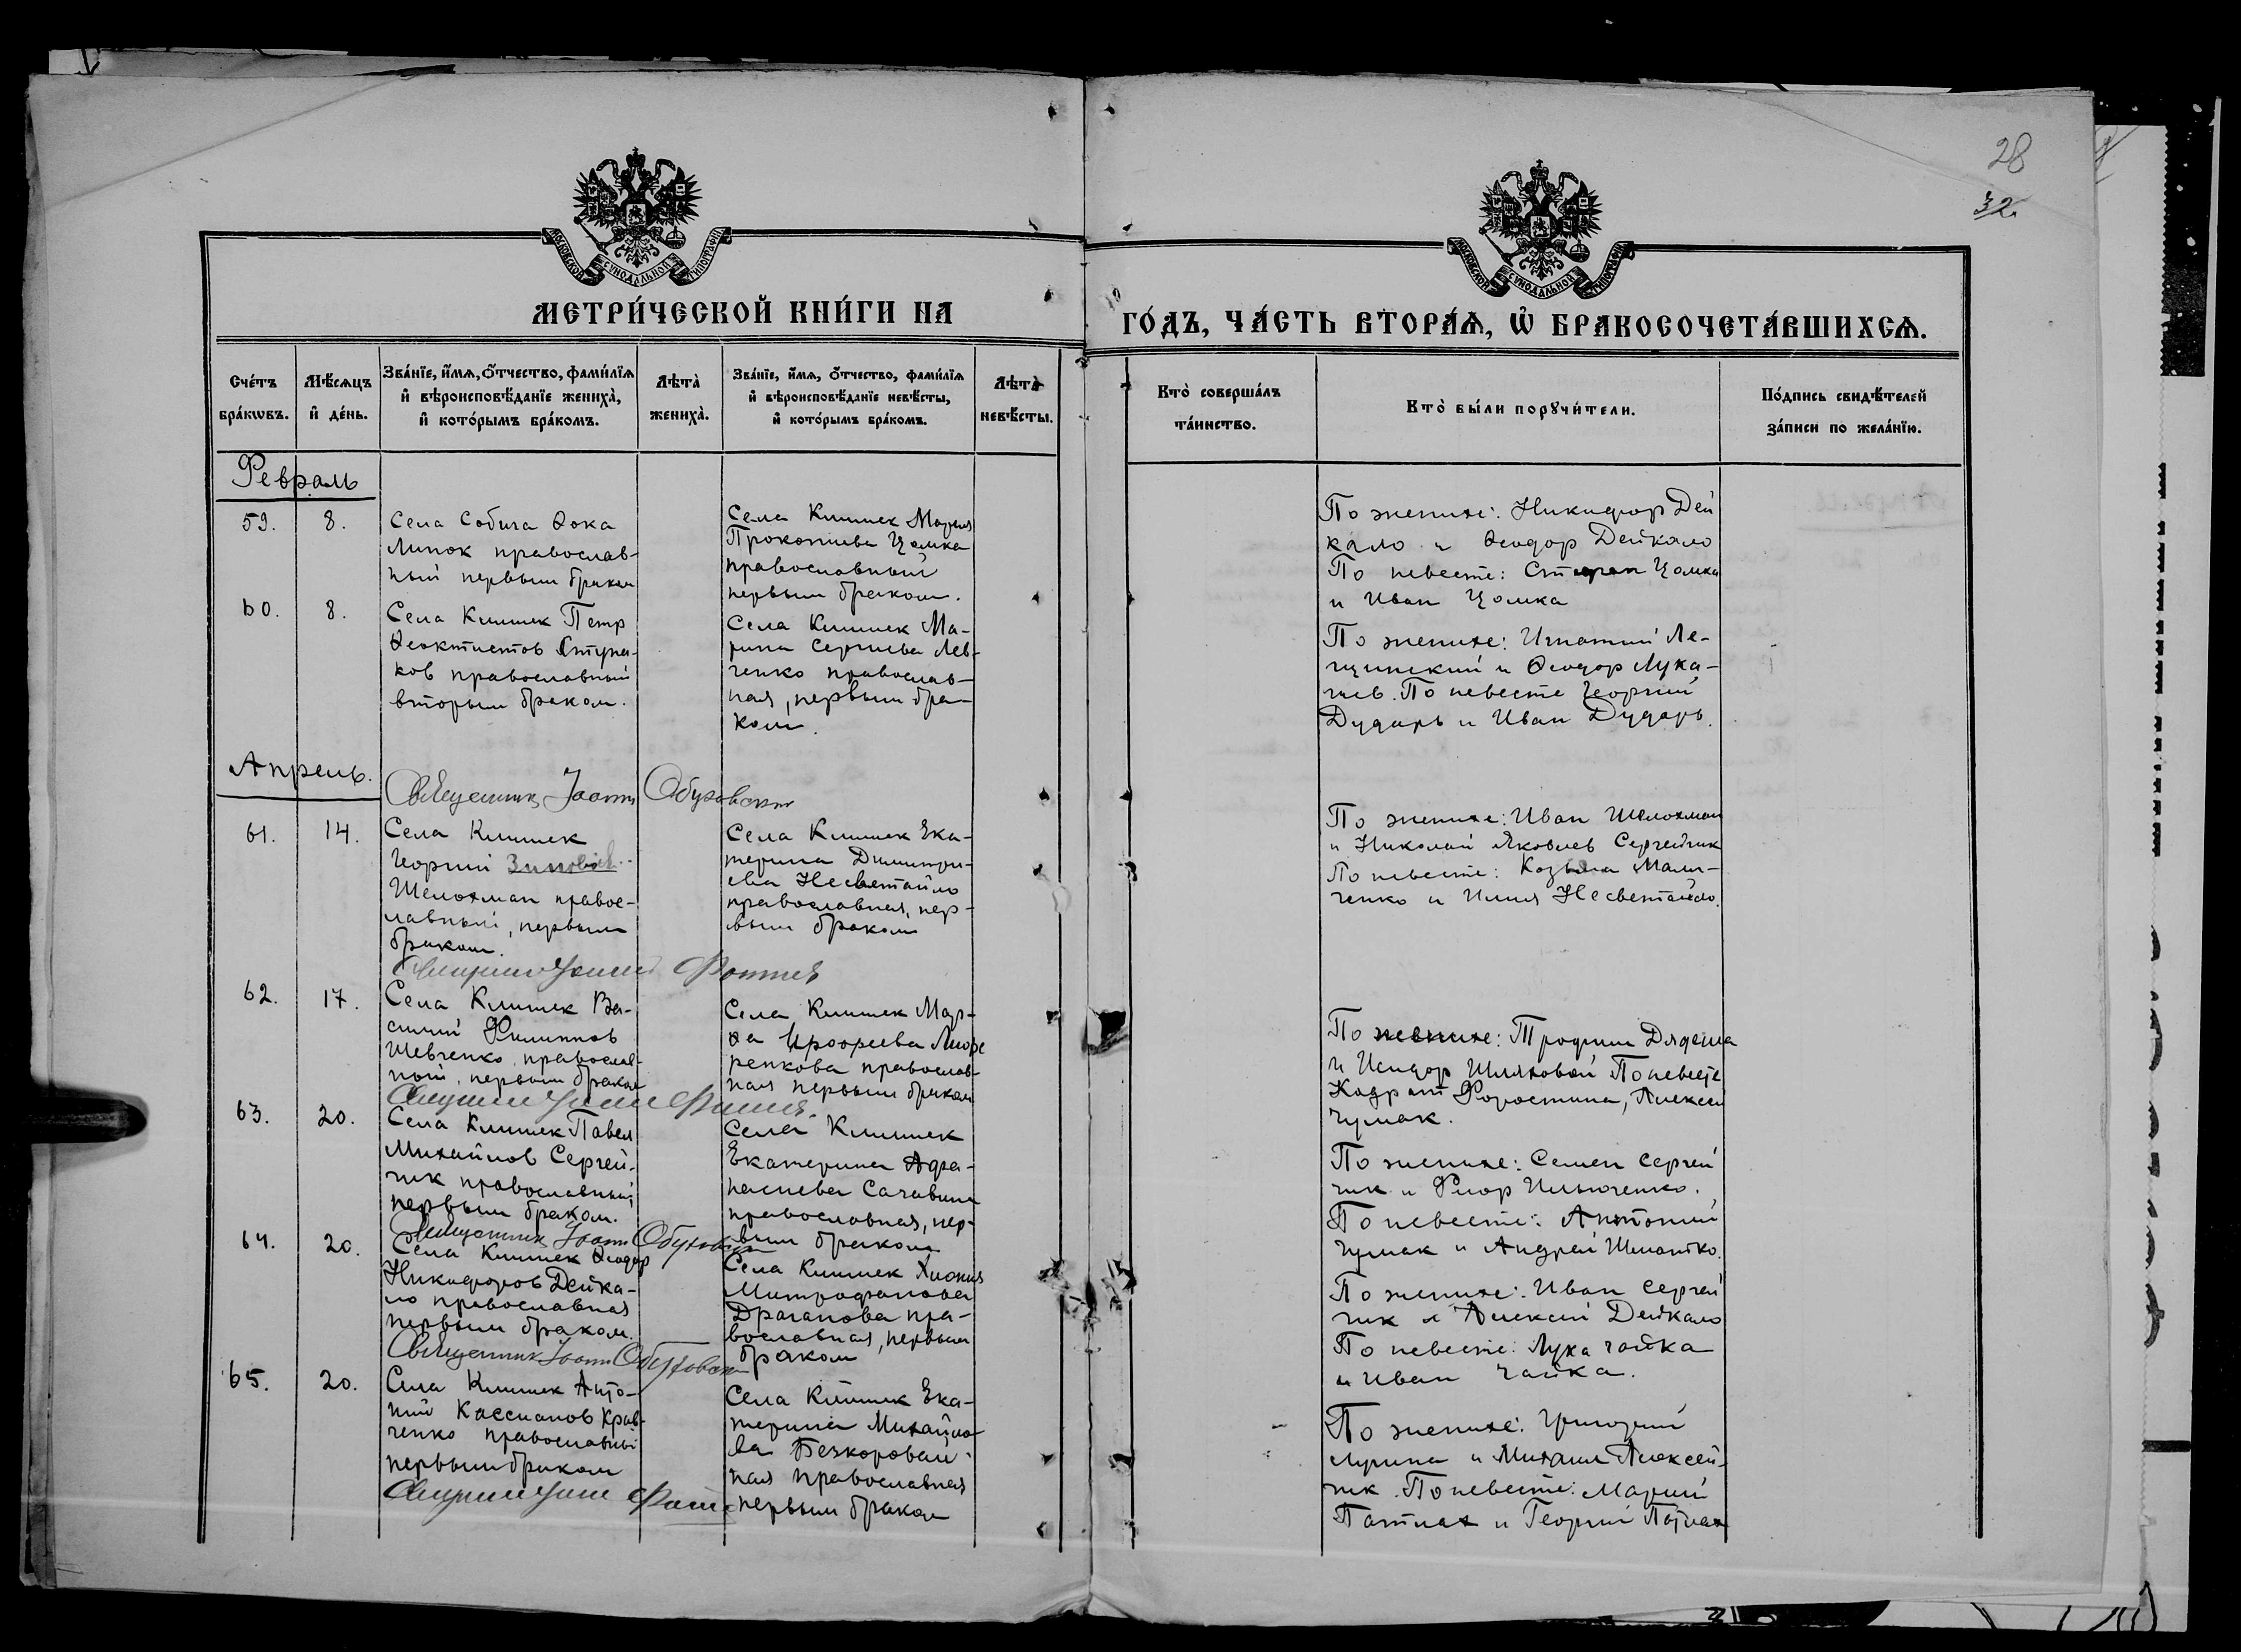 28
32.
МОСКОВСКОЙ СѴНОДАЛЬНОЙ ТИПОГРАФІИ
МОСКОВСКОЙ СѴНОДАЛЬНОЙ ТИПОГРАФІИ
МЕТРИ́ЧЕСКОЙ КНИ́ГИ НА
ГО́ДЪ, ЧА́СТЬ ВТОРА́Ѧ, Ѽ БРАКОСОЧЕТА́ВШИХСѦ.
Сче́тъ
бра́кѡвъ.
Мѣ́сѧцъ
и҆ де́нь.
Зва́нїе, и҆́мѧ, ѻ҆́тчество, фами́лїѧ
и҆ вѣроисповѣ́данїе жениха̀,
и҆ кото́рымъ бра́комъ.
Лѣта̀
жениха̀.
Зва́нїе, и҆́мѧ, ѻ҆́тчество, фами́лїѧ
и҆ вѣроисповѣ́данїе невѣ́сты,
и҆ кото́рымъ бра́комъ.
Лѣта̀
невѣ́сты.
Кто̀ соверша́лъ
та́инство.
Кто̀ бы́ли порꙋчи́тели.
По́дпись свидѣ́телей
за́писи по жела́нїю.
Февраль
59.
8.
Села Собича Фока
Линок православ-
ный первым браком
Села Клишек Мария
Прокопиева Цомка
православный
первым браком.
По женихе: Никифор Дей
кало и Феодор Дейкало
По невесте: Стефан Цомка
и Иван Цомка
60.
8.
Села Клишек Петр
Феоктистов Ступа-
ков православный
вторым браком.
Села Клишек Ма-
рина Сергиева Лев-
ченко православ-
ная, первым бра-
ком.
По женихе: Игнатий Ле-
щинский и Феодор Лука-
шев. По невесте Георгий
Дударь и Иван Дударь.
Апрель.
Священник Иоанн Обуховский
61.
14.
Села Клишек
Георгий Зиновіев
Шелохман правос-
лавный, первым
браком.
Села Клишек Ека-
терина Димитри-
ева Несветайло
православная, пер-
вым браком
По женихе: Иван Шелохман
и Николай Яковлев Сергейчик
По невесте: Козьма Мали-
ченко и Илия Несветайло.
62.
17.
Села Клишек Ва-
силий Филиппов
Шевченко, православ-
ный, первым браком
Села Клишек Мар-
фа Ерофеева
ренкова православ-
ная первым браком
По женихе: Трофим Дядеша
и Исидор Шляховой По невесте
Кодрат Форостина, Алексей
Чумак.
63.
20.
Села Клишек Павел
Михайлов Сергей-
чик православный
первым браком.
Села Клишек
Екатерина Афа-
насиева Сачавина
православная, пер-
вым браком
По женихе: Семен Сергей
чик и Флор Ильюченко.
По невесте: Антоний
Чумак и Андрей Шматко.
Священник Иоанн Обуховский
64.
20.
Села Клишек Феодор
Никифоров Дейка-
ло православная
первым браком.
Села Клишек Хиония
Митрофанова
Драганова пра-
вославная, первым
браком
По женихе: Иван Сергей
чик и Алексей Дейкало
По невесте: Лука Чайка
и Иван Чайка.
Священник Иоанн Обуховский
65.
20.
Села Клишек Анто-
ний Кассианов Крав-
ченко православный
первым браком
Села Клишек Ека-
терина Михайло-
ва Безкоровай-
ная православная
первым браком
По женихе: Григорий
Лурина и Михаил Алексей-
чик. По невесте: Марий
Патлах и Георгий Патлах